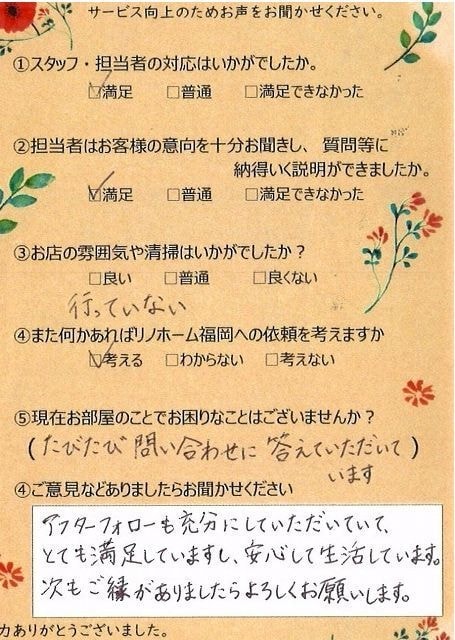 サービス向上のためお声をお聞かせください。
①スタッフ・担当者の対応はいかがでしたか。
☑満足 □普通 □満足できなかった
②担当者はお客様の意向を十分お聞きし、質問等に
納得いく説明ができましたか。
☑満足 □普通 □満足できなかった
③お店の雰囲気や清掃はいかがでしたか?
□良い □普通 □良くない
行っていない
④また何かあればリノホーム福岡への依頼を考えますか
☑考える □わからない □考えない
⑤現在お部屋のことでお困りなことはございませんか?
(たびたび問い合わせに答えていただいて)
います
④ご意見などありましたらお聞かせください
アフターフォローも充分にしていただいていて、
とても満足していますし、安心して生活しています。
次もご縁がありましたらよろしくお願いします。
力ありがとうございました。